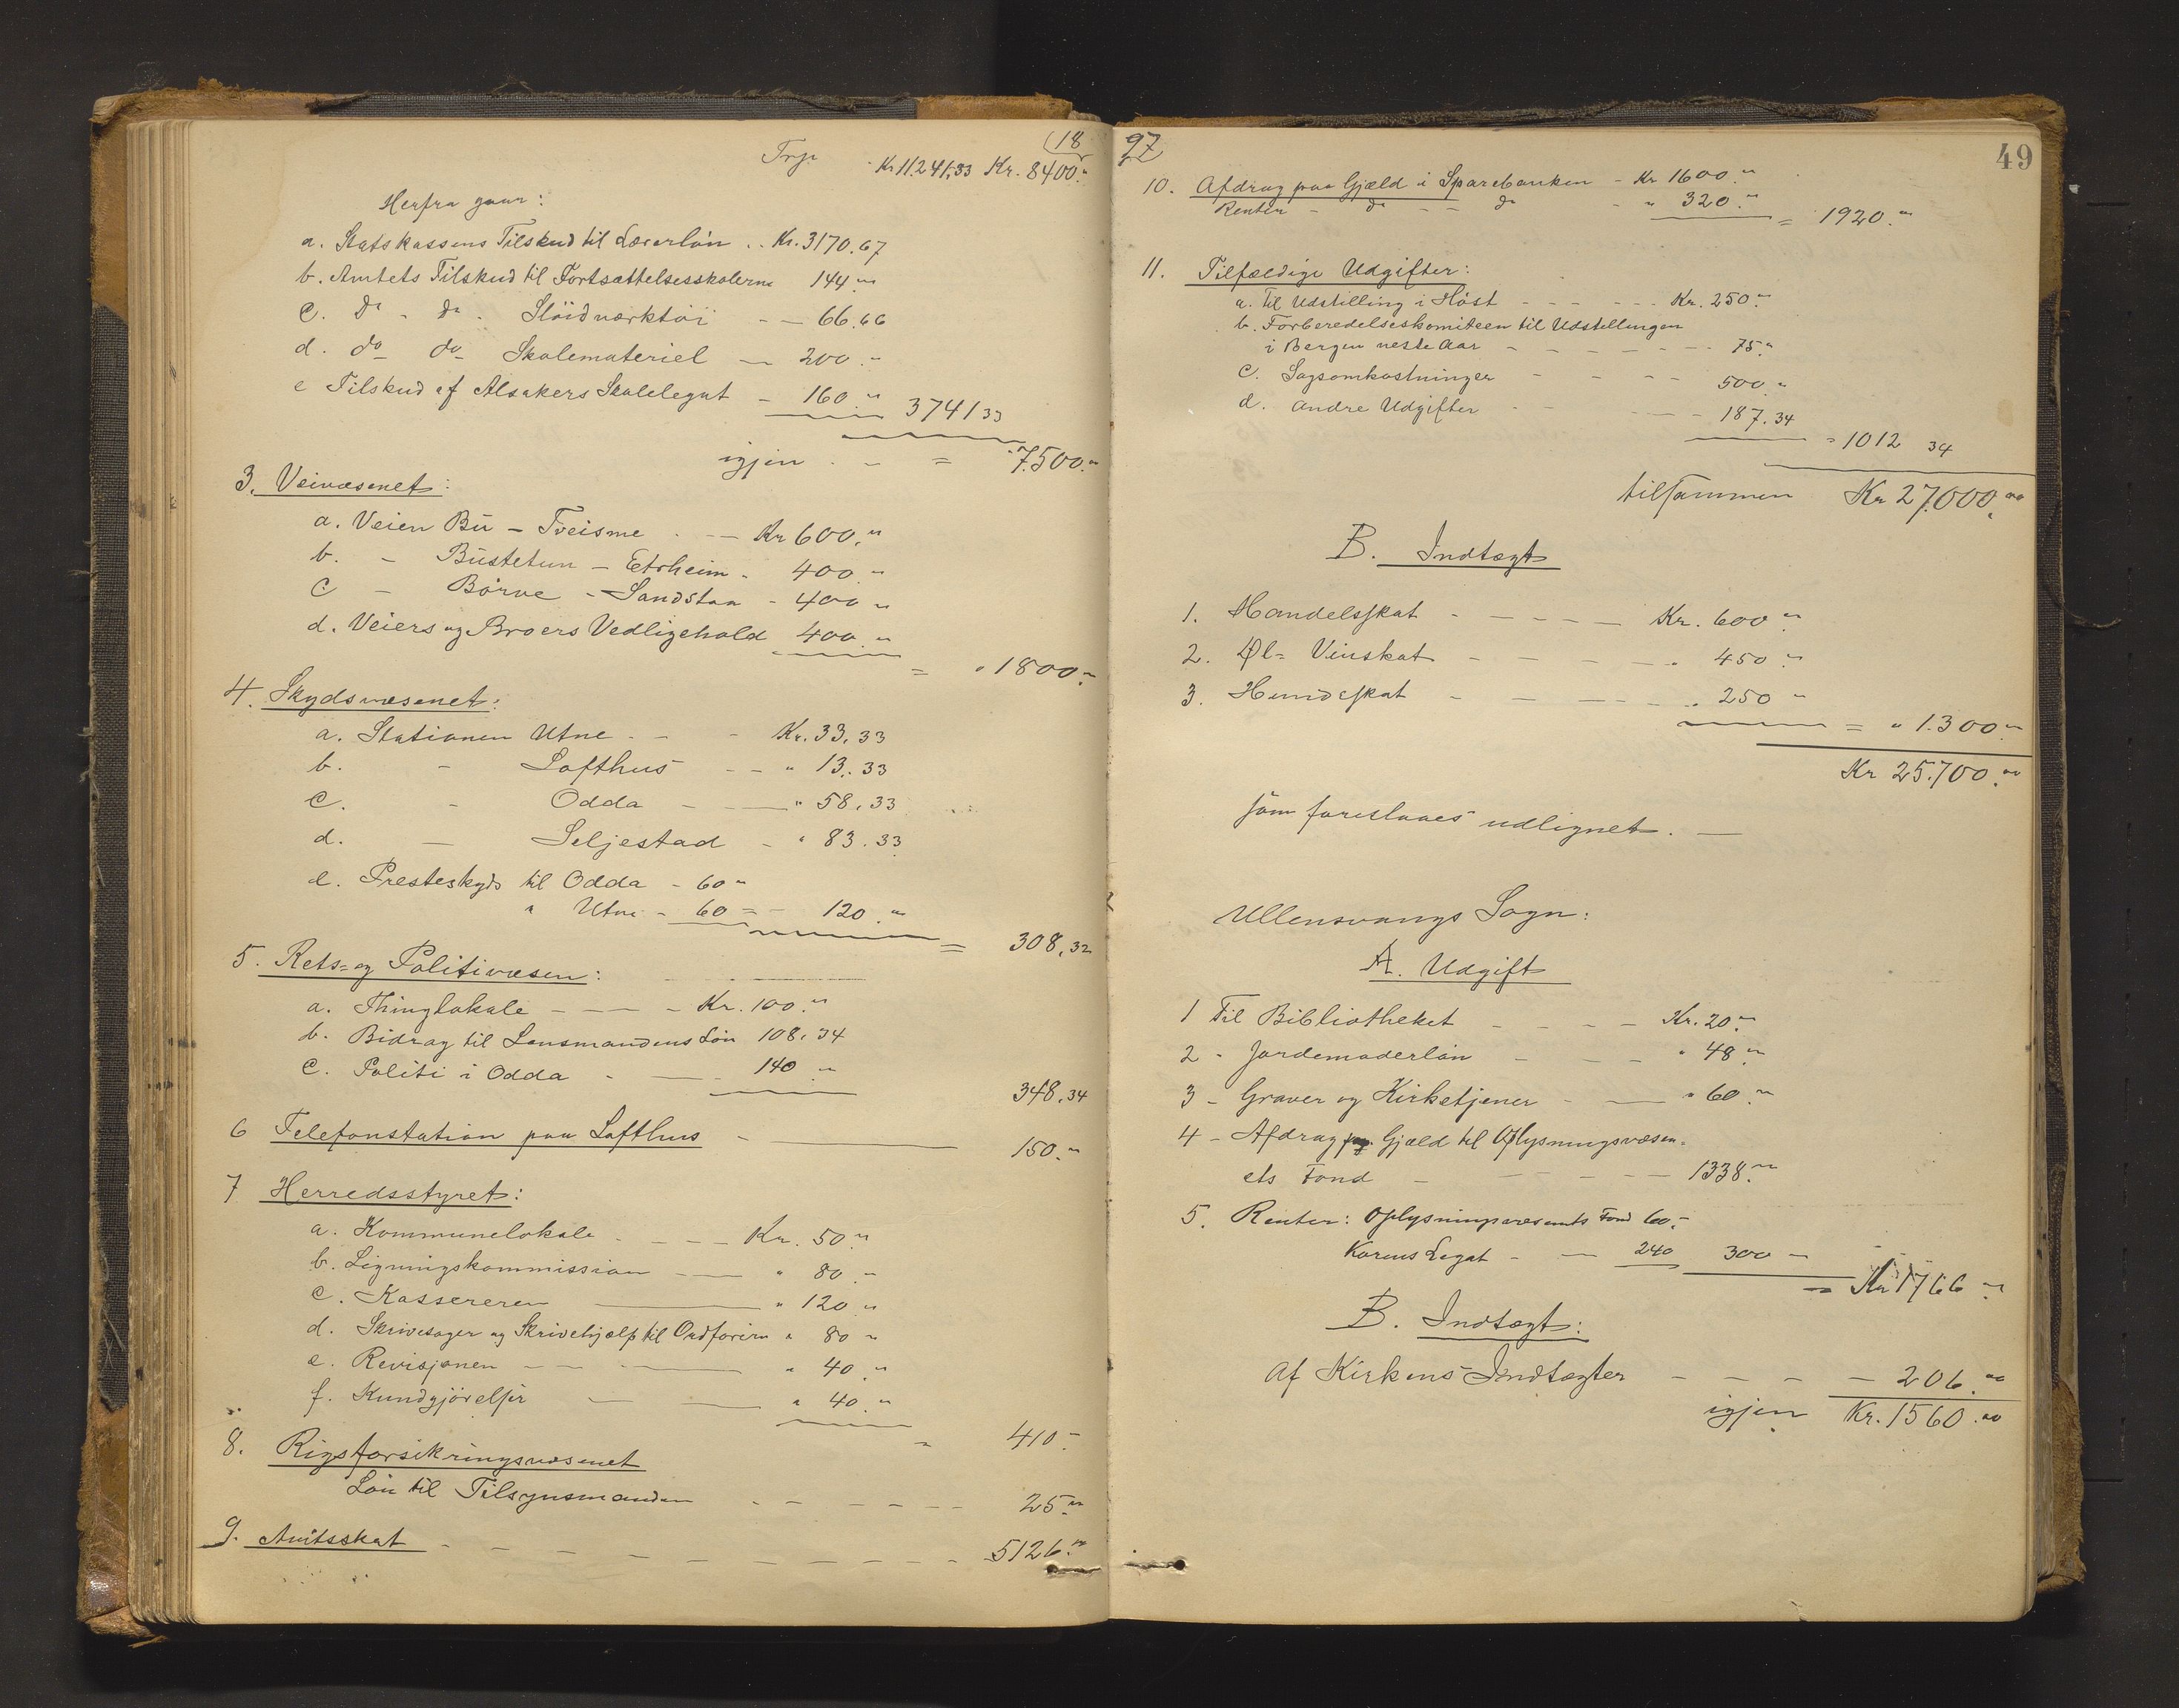 (18
Trp. Kr 11.241,33 Kr. 8400."
Herfra gaar:
a. Statskassens Tilskud til Lærerløn .. Kr. 3170.67
b. Amtets Tilskud til Fortsættelsesskolerne 144 "
c. do - do - Slöidværktøi - — 66.66
d. do do Skolemateriel — 200 "
e Tilskud af Alsakers Skolelegat - 160 " 3741 33
igjen . - = " 7.500."
3. Veivæsenet:
a. Veien Bü - Tveisme . - — Kr 600,"
b. - Büstetun - Etrheim - 400 "
c - Börve - Sandstøa - 400 "
d. Veiers og Broers Vedligehold 400 "
= " 1800."
4. Skydsvæsenet:
a. Stationen Utne - - - Kr. 33,33
b. - Lofthus - - " 13.33
c. - Odda - — " 58,33
d. — Seljestad - " 83.33
e. Presteskyds til Odda - 60 "
" Utne - 60 = - 120 "
= 308,32
5. Rets- og Politivæsen:
a. Thinglokale - — - Kr. 100."
b. Bidrag til Lensmandens Løn 108,34
c. Politi i Odda - — 140 "
348,34
6 Telefonstation paa Lofthus - — 150."
7 Herredsstyret:
a. Kommunelokale - - - — Kr. 50."
b. Ligningskommission — " 80 "
c. Kassereren — " 120 "
d. Skrivesager og Skrivehjælp til Ordføreren " 80 "
e. Revisjonen - — — " 40 "
f. Kundgjörelser — — " 40 "
= 410 "
8. Rigsforsikringsvæsenet
Løn til Tilsynsmanden - - - - - - 25 "
9. Amtsskat - - - - - - - - - - - 5126."
97
49
10. Afdrag paa Gjæld i Sparebanken - Kr 1600."
Renter - do - - do - " 320."
= 1920."
11. Tilfældige Udgifter:
a. Til Udstilling i Höst - - - - - - Kr. 250."
b. Forberedelseskomiteen til Udstillingen
i Bergen neste Aar - - - - - - - 75."
c. Sagsomkostninger - - - - 500 "
d. andre Udgifter - - — - 187.34
= 1012 34
tilsammen Kr 27.000,"
B. Indtægt
1. Handelsskat - - - - — Kr. 600 "
2. Øl= Vinskat - - - - - " 450 "
3. Hundeskat - - - - - " 250 "
= " 1.300 "
Kr 25.700."
som foreslaaes udlignet. —
Ullensvangs Sogn:
A. Udgift
1 Til Bibliotheket - - - - Kr. 20."
2 - Jordemoderløn - - - " 48 "
3 - Graver og Kirketjener - — " 60 "
4 - Afdrag paa Gjæld til Oplysningsvæsen=
ets Fond - - - - — 1338."
5. Renter: Oplysningsvæsenets Fond 60.-
Korens Legat - — 240 300 —
= Kr 1766 "
B. Indtægt:
Af Kirkens Indtægter - - - - 206."
igjen Kr. 1560."